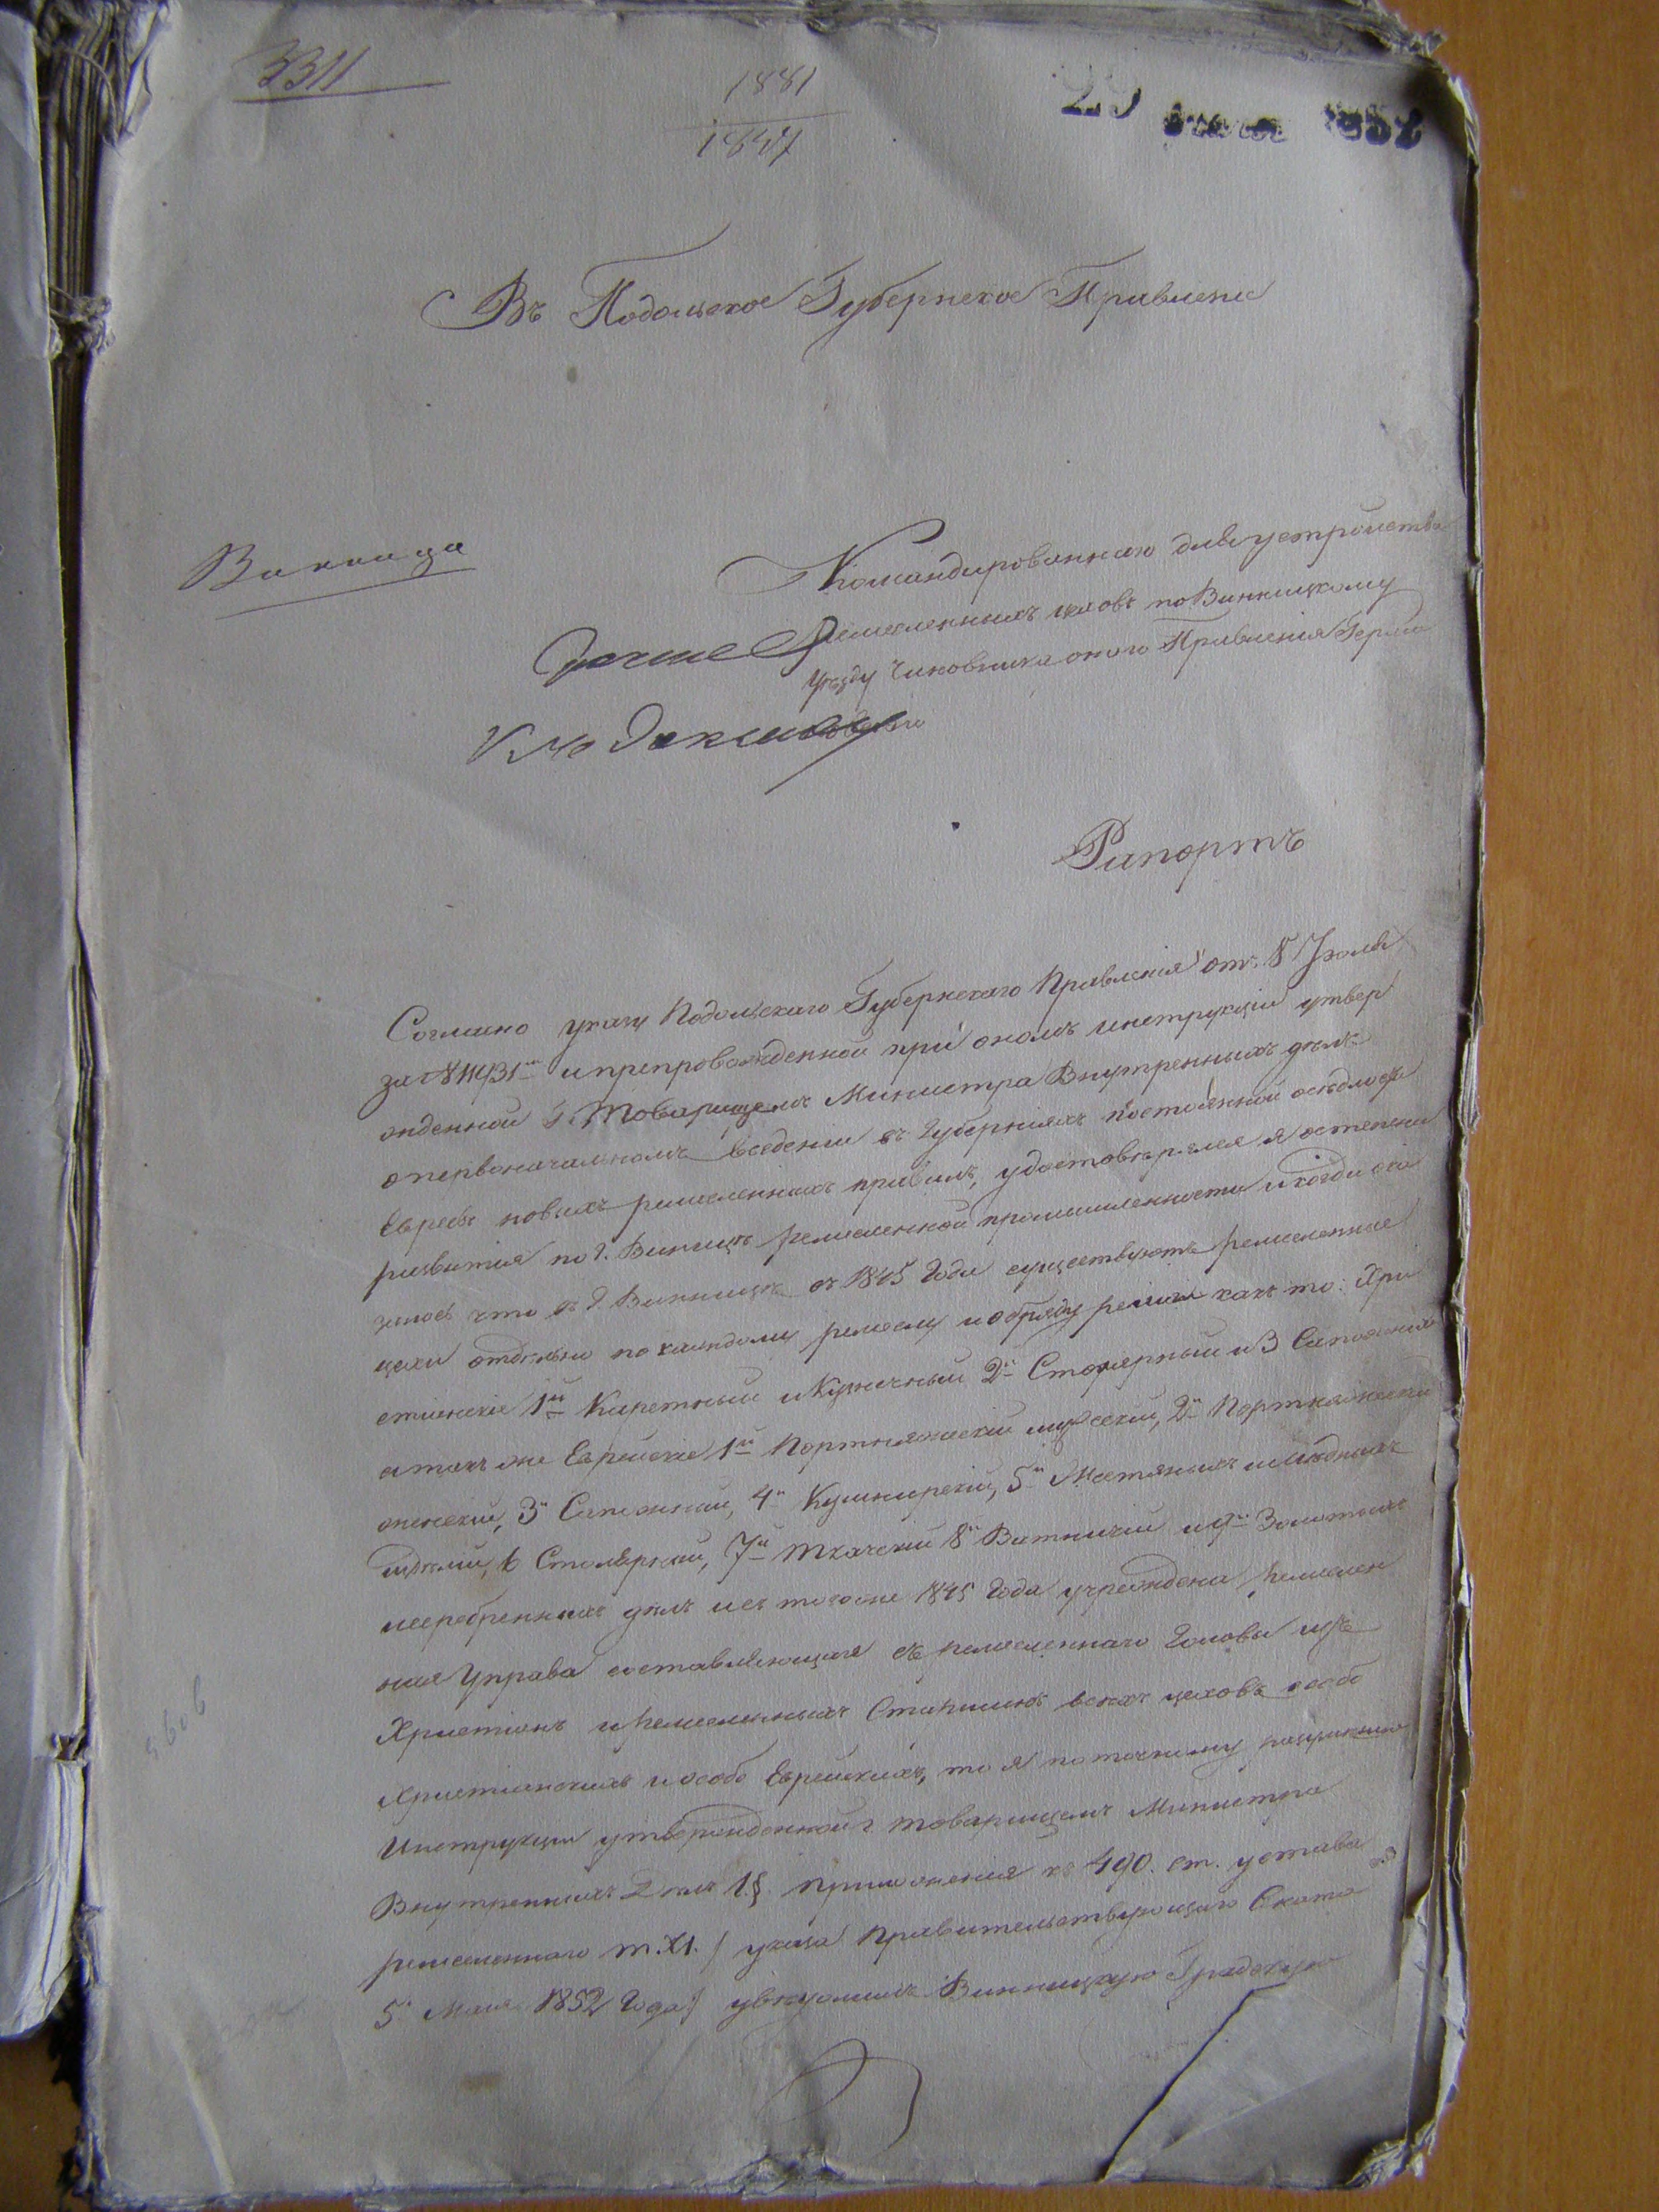 3311
1881
1847
29 1852
Въ Подольское Губернское Правление
Винница
Командированнаго для устройства
ремесленныхъ цеховъ по Винницкому
уѣзду Чиновника оного Правления
Рапортъ
Согласно указу Подольскаго Губернскаго Правленія отъ 8 Іюля
за № 11431м и препровожденной при ономъ инструкціи утвер
жденной Г. Товарищемъ Министра Внутреннихъ дѣлъ
о первоначальномъ введеніи въ Губерніяхъ постоянной осѣдлости
Евреевъ новыхъ ремесленныхъ правилъ, удостовѣрялся я о степени
развития по г. Винницѣ ремесленной промышленности и когда ока
залось что въ г. Винницѣ съ 1845 Года существуютъ ремесленные
цехи отдѣльно по каждому ремеслу и обряду религіи какъ то: Хри
стіянскіе 1й Каретный и Кузнечный 2й Столярный и 3 Сапожный
а такъ же Еврейскіе 1й Портняжескій мужескій, 2й Портняжескій
женскій, 3й Сапожный, 4й Кушнирскій, 5й Жестяныхъ и мѣдныхъ
издѣлій, 6 Столярный, 7й Ткачскій 8й Ватничій и 9й Золотыхъ
и серебренныхъ дѣлъ и съ того же 1845 Года учреждена ремеслен
ная Управа составляющая съ ремесленнаго Головы изъ
Христіянъ и ремесленныхъ Старшинъ всѣхъ цеховъ особо
Християнскихъ и особо Еврейскихъ, то я по точному разуменію
Инструкции утвержденной г. товарищемъ Министра
Внутреннихъ Дѣлъ 1.§. приложения къ 490. ст. устава
ремесленнаго т. XI. / указа Правительствующаго Сената
5 Мая 1852 Года/ увѣдомилъ Винницкую Градскую